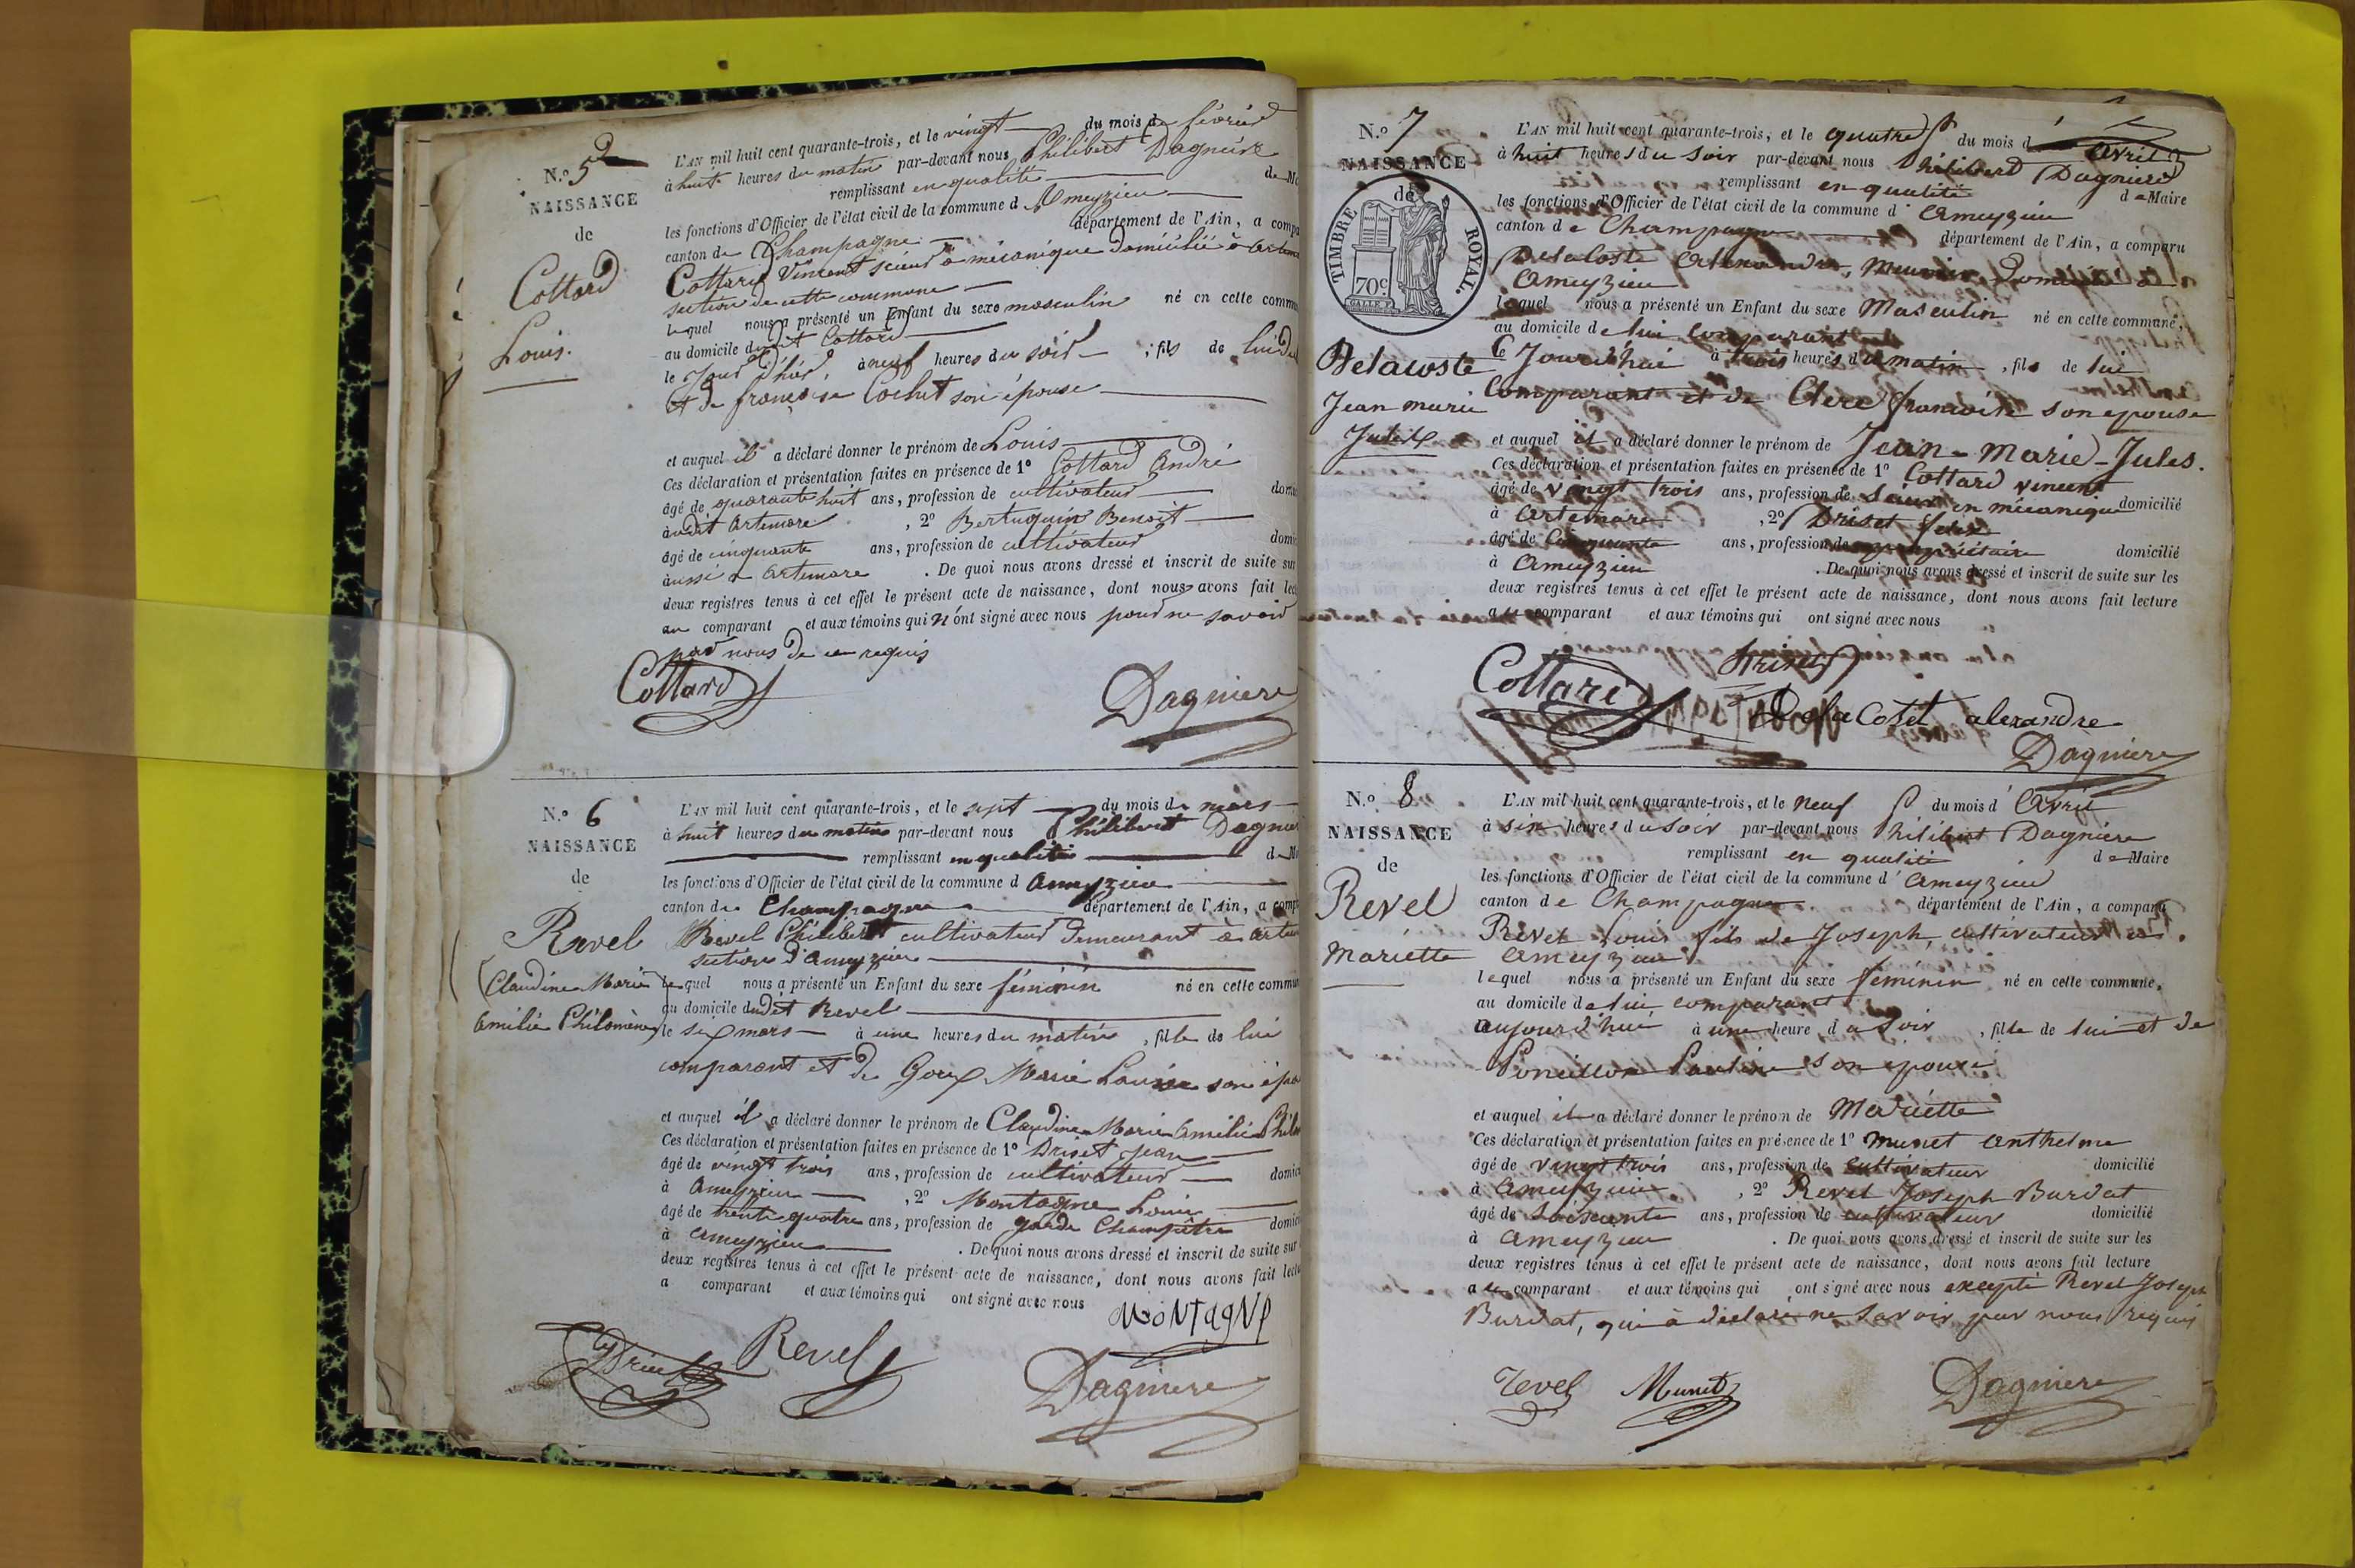 N.o 5
NAISSANCE
de
Cottard
Louis.
L'AN mil huit cent quarante-trois, et le vingt du mois de février
à huit heures du matin par-devant nous Philibert Dagnière
remplissant en qualité de M
les fonctions d'Officier de l'état civil de la commune d Ameyzieu
canton de Champagne département de l'Ain, a compa
Cottard Vincent scieur à mécanique domicilié à Artem
section de cette commune
lequel nous a présenté un Enfant du sexe masculin né en cette commu
au domicile dudit Cottard
le Jour d'hier, à neuf heures du soir, fils de lui d
et de françoise Cochet son épouse
et auquel il a déclaré donner le prénom de Louis
Ces déclaration et présentation faites en présence de 1o Cottard André
âgé de quarante huit ans, profession de cultivateur domi
audit Artemare, 2o Bertuquin Benoit
âgé de cinquante ans, profession de cultivateur domi
aussi à Artemare. De quoi nous avons dressé et inscrit de suite sur
deux registres tenus à cet effet le présent acte de naissance, dont nous avons fait lec
au comparant et aux témoins qui n'ont signé avec nous pour ne savoir
par nous de ce requis
Cottard Dagniere
N.o 6
NAISSANCE
de
Revel
Claudine Marie
Amélie Philomène
L'AN mil huit cent quarante-trois, et le sept du mois de mars
à huit heures du matin par-devant nous Philibert Dagnier
remplissant en qualité de M
les fonctions d'Officier de l'état civil de la commune d Ameyzieu
canton de Champagne département de l'Ain, a comp
Revel Philibert cultivateur demeurant à Artem
section d'Ameyzieu
lequel nous a présenté un Enfant du sexe féminin né en cette commun
au domicile dudit Revel
le six mars à une heures du matin, fille de lui
comparant et de Goux Marie Louise son épou
et auquel il a déclaré donner le prénom de Claudine Marie Amélie Philo
Ces déclaration et présentation faites en présence de 1o Driset Jean
âgé de vingt trois ans, profession de cultivateur domici
à Ameyzieu, 2o Montagne Louis
âgé de trente quatre ans, profession de garde Champêtre domici
à Ameyzieu. De quoi nous avons dressé et inscrit de suite sur
deux registres tenus à cet effet le présent acte de naissance, dont nous avons fait lectu
a comparant et aux témoins qui ont signé avec nous
MONTAGNE
Driset Revel Dagniere
N.o 7
NAISSANCE
de
TIMBRE ROYAL.
70c
Delacoste
Jean marie
Jules
L'AN mil huit cent quarante-trois, et le quatre du mois d'avril
à huit heures du soir par-devant nous Philibert Dagniere
remplissant en qualité de Maire
les fonctions d'Officier de l'état civil de la commune d'Ameyzieu
canton de Champagne département de l'Ain, a comparu
Delacoste Alexandre, Meunier Domicilié à
Ameyzieu
lequel nous a présenté un Enfant du sexe Masculin né en cette commune,
au domicile de lui comparant
Ce Jourd'hui à trois heures du matin, fils de lui
Comparant et de Clerc françoise son epouse
et auquel il a déclaré donner le prénom de Jean-Marie-Jules.
Ces déclaration et présentation faites en présence de 1o Cottard vincent
âgé de vingt trois ans, profession de Scieur en mécanique domicilié
à Artemare, 2o Driset
âgé de Cinquante ans, profession de propriétaire domicilié
à Ameyzieu. De quoi nous avons dressé et inscrit de suite sur les
deux registres tenus à cet effet le présent acte de naissance, dont nous avons fait lecture
au comparant et aux témoins qui ont signé avec nous
Cottard Driset
Delacoset alexandre
Dagniere
N.o 8
NAISSANCE
de
Revel
Mariette
L'AN mil huit cent quarante-trois, et le neuf du mois d'Avril
à six heures du soir par-devant nous Philibert Dagniere
remplissant en qualité de Maire
les fonctions d'Officier de l'état civil de la commune d'Ameyzieu
canton de Champagne département de l'Ain, a comparu
Revel Louis fils de Joseph, cultivateur à
Ameyzieu
lequel nous a présenté un Enfant du sexe feminin né en cette commune,
au domicile de lui comparant
aujourd'hui à une heure du Soir, fille de lui et de
Ponillon Pauline son epouse
et auquel il a déclaré donner le prénom de Mariette
Ces déclaration et présentation faites en présence de 1o Munet Anthelme
âgé de vingt trois ans, profession de cultivateur domicilié
à Ameyzieu, 2o Revel Joseph Burdat
âgé de Soixante ans, profession de cultivateur domicilié
à Ameyzieu. De quoi nous avons dressé et inscrit de suite sur les
deux registres tenus à cet effet le présent acte de naissance, dont nous avons fait lecture
au comparant et aux témoins qui ont signé avec nous excepté Revel Joseph
Burdat, qui à déclaré ne Savoir par nous requis
Revel Munet Dagniere